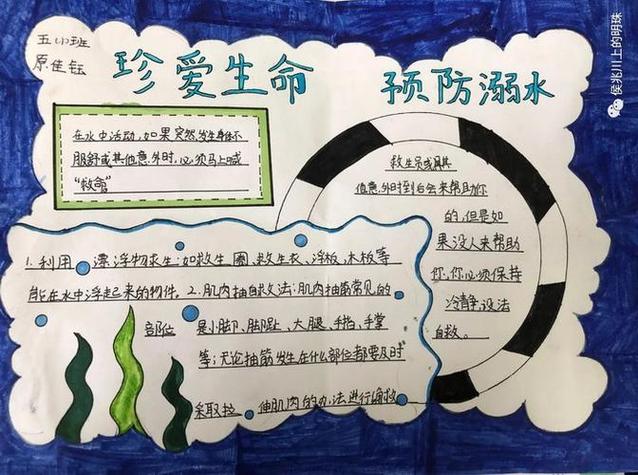 五(1)班
原佳钰
珍爱生命 预防溺水
在水中活动,如果突然发生身体不
服舒或其他意外时,必须马上喊
"救命"
救生员或有其
他意外时到台会来帮助你
的,但是如
果没人来帮助
你,你必须保持
冷静,设法
自救。
1.利用 漂浮物求生:如救生圈、救生衣、浮板、木板等
能在水中浮起来的物件。2.肌肉抽自救法:肌肉抽筋常见的
部位 是小脚、脚趾、大腿、手指、手掌
等;无论抽筋发生在什么部位都要及时
采取拉 伸肌肉的办法进行
侯兆川上的明珠